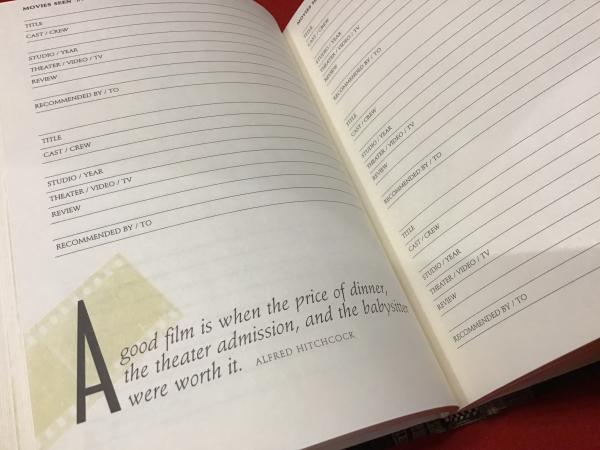 MOVIES SEEN
TITLE
CAST / CREW
STUDIO / YEAR
THEATER / VIDEO / TV
REVIEW
RECOMMENDED BY / TO
TITLE
CAST / CREW
STUDIO / YEAR
THEATER / VIDEO / TV
REVIEW
RECOMMENDED BY / TO
A good film is when the price of dinner,
the theater admission, and the babysitter
were worth it. ALFRED HITCHCOCK
MOVIES SEEN
TITLE
CAST / CREW
STUDIO / YEAR
THEATER / VIDEO / TV
REVIEW
RECOMMENDED BY / TO
TITLE
CAST / CREW
STUDIO / YEAR
THEATER / VIDEO / TV
REVIEW
RECOMMENDED BY / TO
TITLE
CAST / CREW
STUDIO / YEAR
THEATER / VIDEO / TV
REVIEW
RECOMMENDED BY / TO